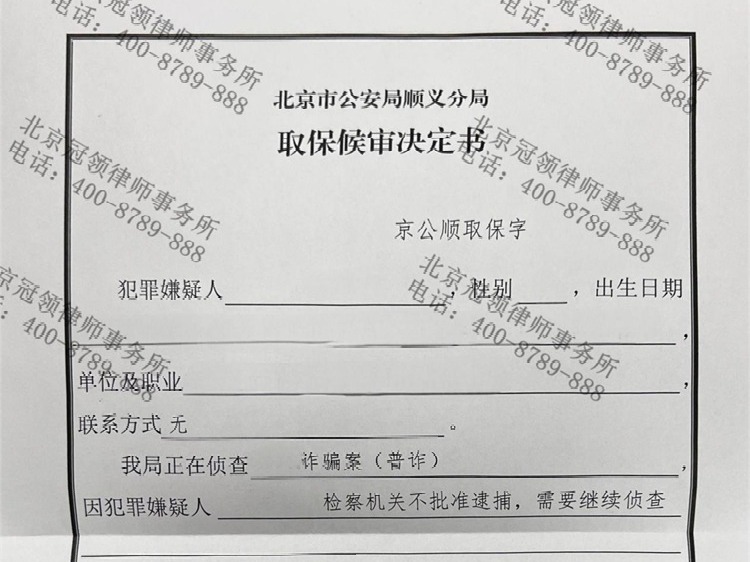 北京冠领律师事务所
电话：400-8789-888
北京冠领律师事务所
电话：400-8789-888
北京市公安局顺义分局
取保候审决定书
北京冠领律师事务所
电话：400-8789-888
北京冠领律师事务所
电话：400-8789-888
京公顺取保字
犯罪嫌疑人，性别，出生日期
，
北京冠领律师事务所
电话：400-8789-888
北京冠领律师事务所
：400-8789-888
单位及职业，
联系方式无。
我局正在侦查诈骗案（普诈），
因犯罪嫌疑人检察机关不批准逮捕，需要继续侦查